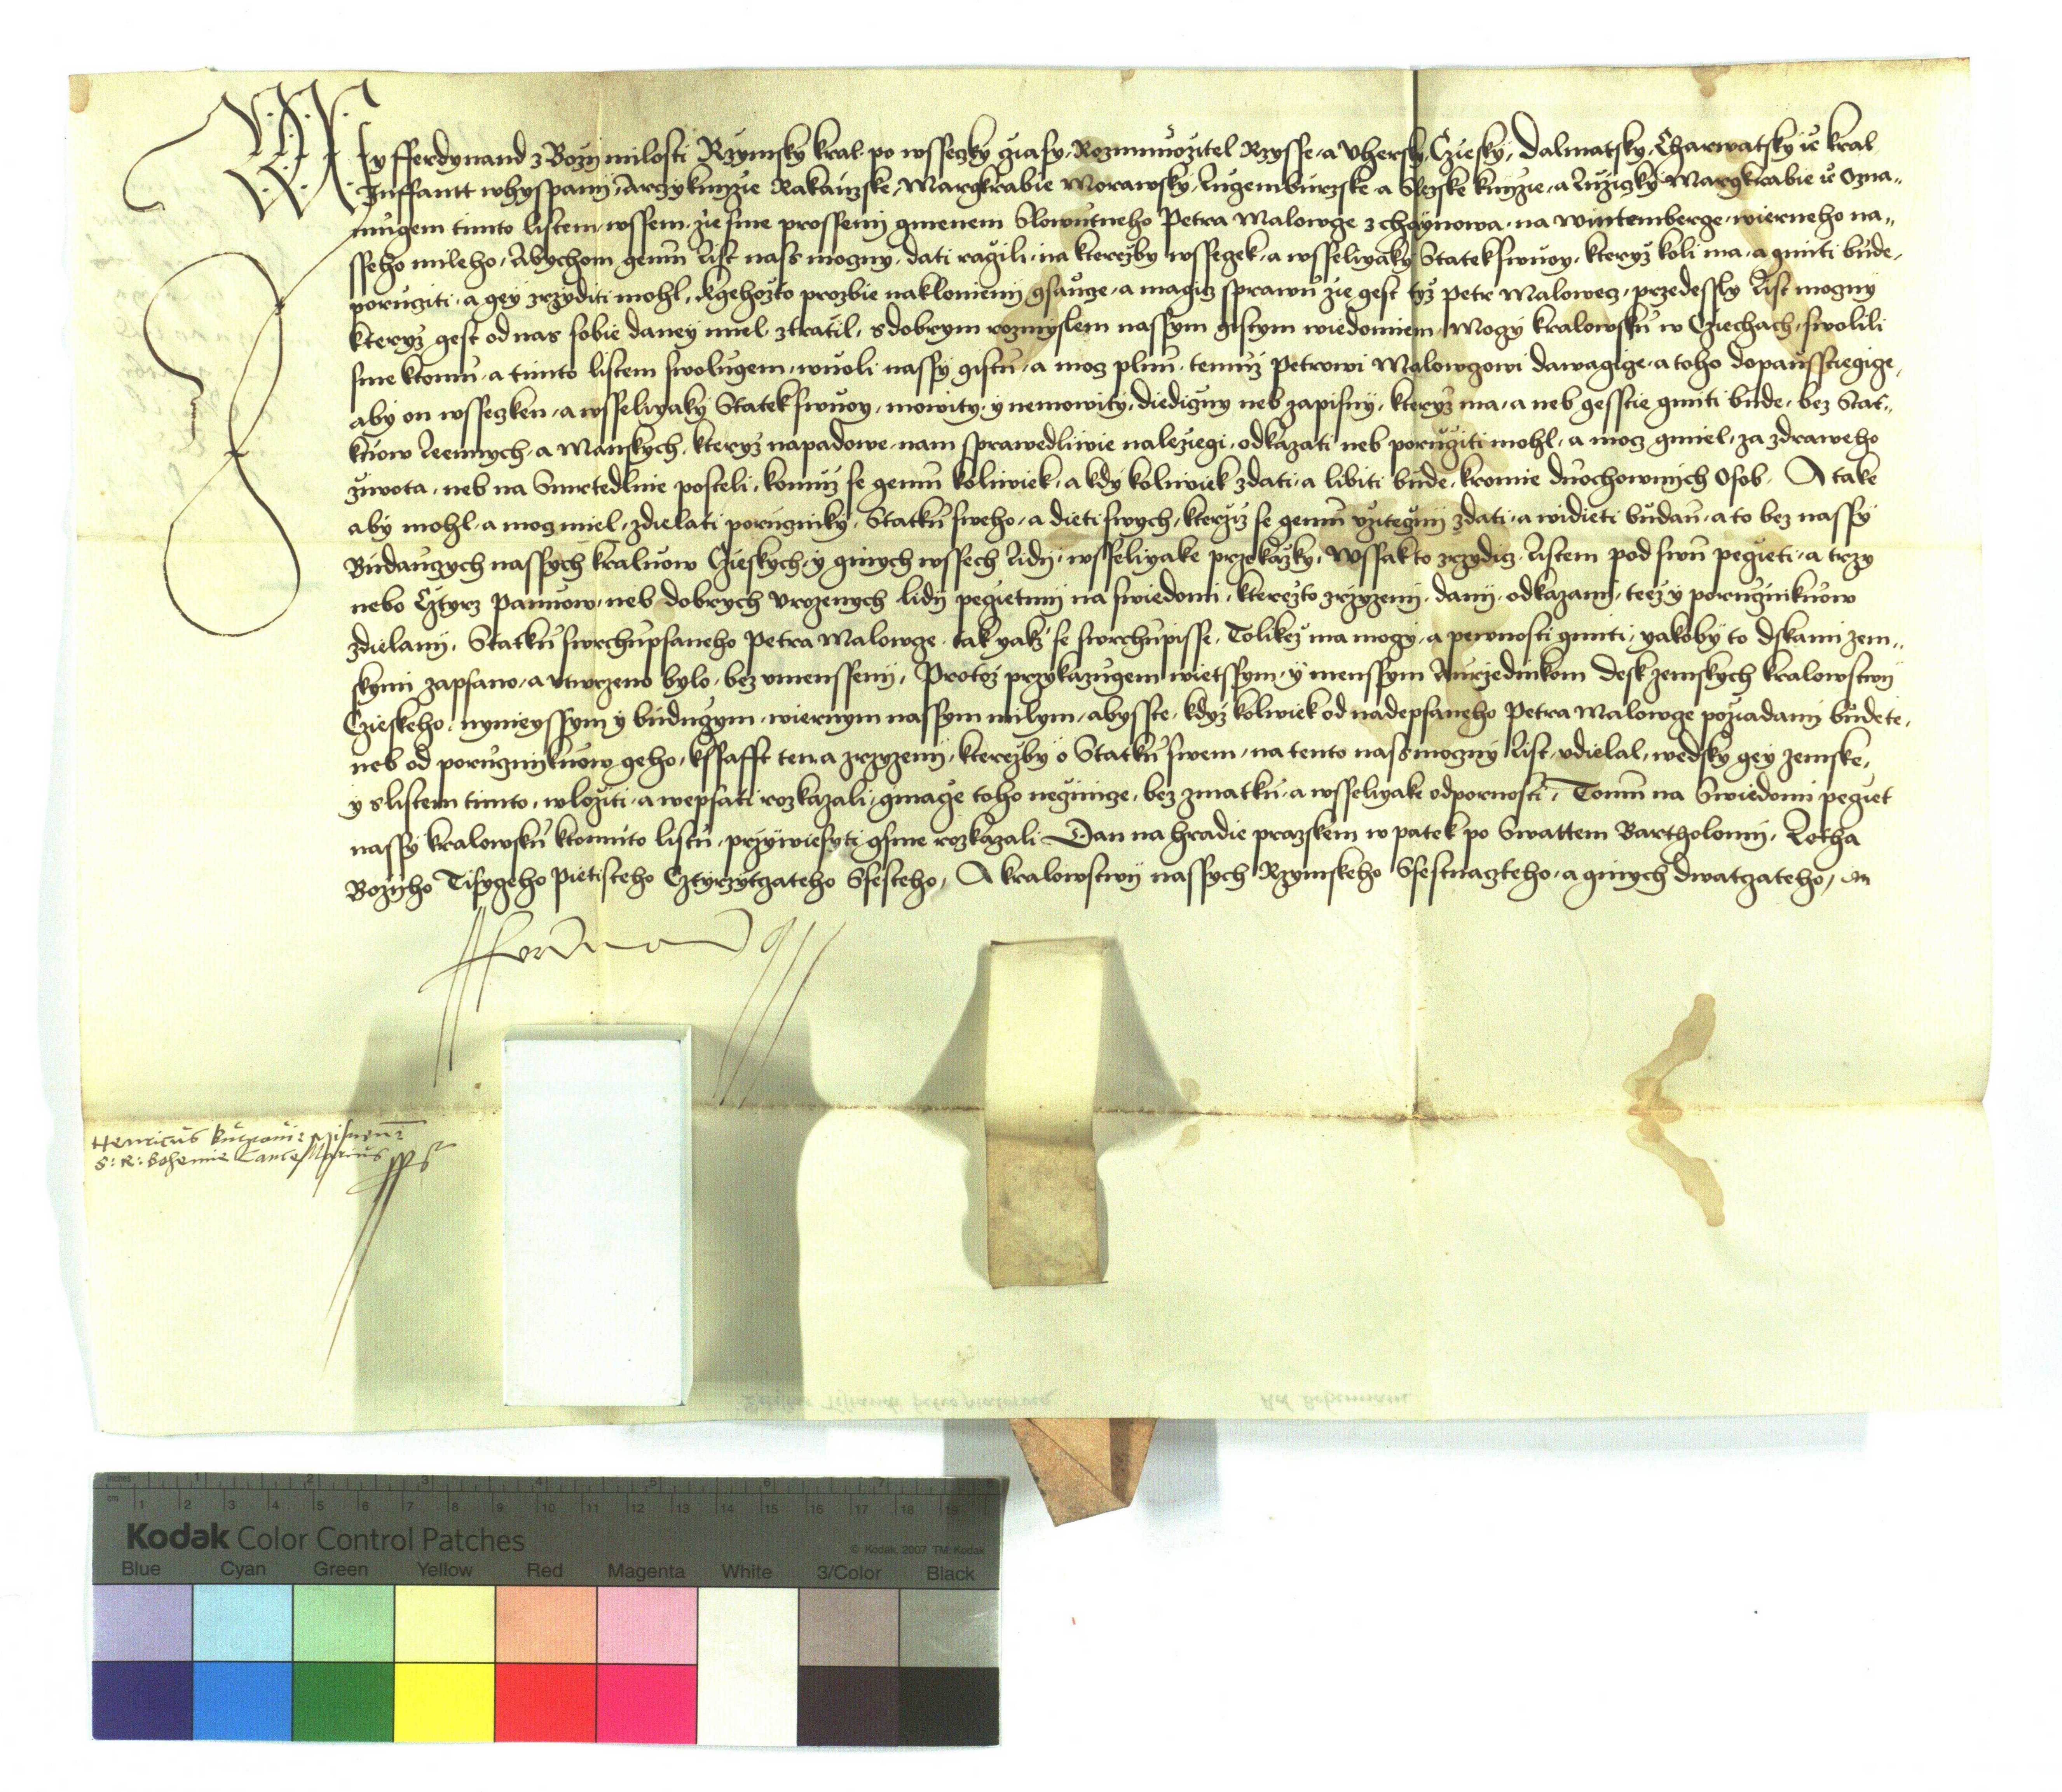 My fferdynand z Bozij milosti Rzymsky kral po wsseczky cziasy Rozmnozitel Rzysse a Vhersky, Cziesky, Dalmatsky, Charwatsky ic kral
Inffantt whyspanij, Arczyknizie Rakauzske, Margkrabie Morawsky, Lucemburzske a Slezske knizie, a Luziczky Margkrabie ic Ozna„
mugem timto listem wssem, zie sme prosseni gmenem Slowutneho Petra Malowcze z chaynowa na Wintemberge wierneho na„
sseho mileho, Abychom gemu List nass moczny dati raczili, na kterezby wsseczek, a wsseliyaky Statek swuoy, kteryz koli ma, a gmiti bude,
porucziti, a gey zrzyditi mohl, k gehozto prozbie naklonieni gsaucze, a magicz sprawu zie gest tyz Petr Malowecz, przedessly List moczny
kteryz gest od nas sobie daney miel, ztratil, s dobrym rozmyslem nassym gistym wiedomiem, Moczy kralowsku w Cziechach, swolili
sme ktomu, a timto listem swolugem, wuoli nassy gistu, a mocz plnu, temuz Petrowi Malowczowi dawagicze, a toho dopausstiegicze,
aby on wsseczken, a wsseliyaky Statek swuoy, mowity, y nemowity, diediczny neb zapisny, kteryz ma, a neb gesstie gmiti bude, bez Stat„
kuow Leennych, a Manskych, kteryz napadowe nam sprawedliwie nalezegi, odkazati neb porucziti mohl, a mocz gmiel, za zdraweho
ziwota, neb na Smrtedlnie posteli, komuz se gemu koliwiek, a kdy koliwiek zdati, a libiti bude, kromie duochownich Osob. A take
aby mohl, a mocz miel, zdielati poruczniky, Statku sweho, a dieti swych, kterziz se gemu vzitecznij zdati, a widieti budau, a to bez nassy
Budauczych nassych kraluow Czieskych, y ginych wssech Lidij, wsseliyake przekazky, Wssak to zrzydicz, Listem pod swu peczieti, a trzy
nebo Cztyrz Panuow, neb dobrych Vrozenych lidij peczietmi na swiedomi, kterezto zrzyzeni, dani, odkazani, teez y porucznikuow
zdielani, Statku swrchupsaneho Petra Malowcze tak yakz se swrchupisse, Tolikez ma moczy, a pewnosti gmiti, yakoby to dskami zem„
skymi zapsano, a vtwrzeno bylo, bez vmenssenij, Protoz przykazugem wietssym, y menssym Aurzednikom desk zemskych kralowstwij
Czieskeho, nynieyssym y buduczym, wiernym nassym milym, abysste, kdyz koliwiek od nadepsaneho Petra Malowcze poziadani budete,
neb od porucznikuow geho, kssafft ten a zrzyzenij, kterezby o Statku swem, na tento nass moczny List, vdielal, wedsky gey zemske,
y s listem timto, wloziti, a wepsati rozkazali, ginacze toho neczinicze, bez zmatku, a wsseliyake odpornosti, Tomu na Swiedomi peczet
nassy kralowsku ktomuto listu, przywiesyti gsme rozkazali Dan na hradie prazskem w patek po Swattem Bartholomij, Letha
Bozijho Tisyczeho Pietisteho Cztyrzytczateho Ssesteho, A kralowstwij nassych Rzymskeho Ssestnaczteho, a ginych dwatczateho,
Henricus
S: R: Bohemie Cancellarius
inches 1 2 3 4 5 6 7 8
cm 1 2 3 4 5 6 7 8 9 10 11 12 13 14 15 16 17 18 19
Kodak Color Control Patches
© Kodak, 2007 TM: Kodak
Blue Cyan Green Yellow Red Magenta White 3/Color Black